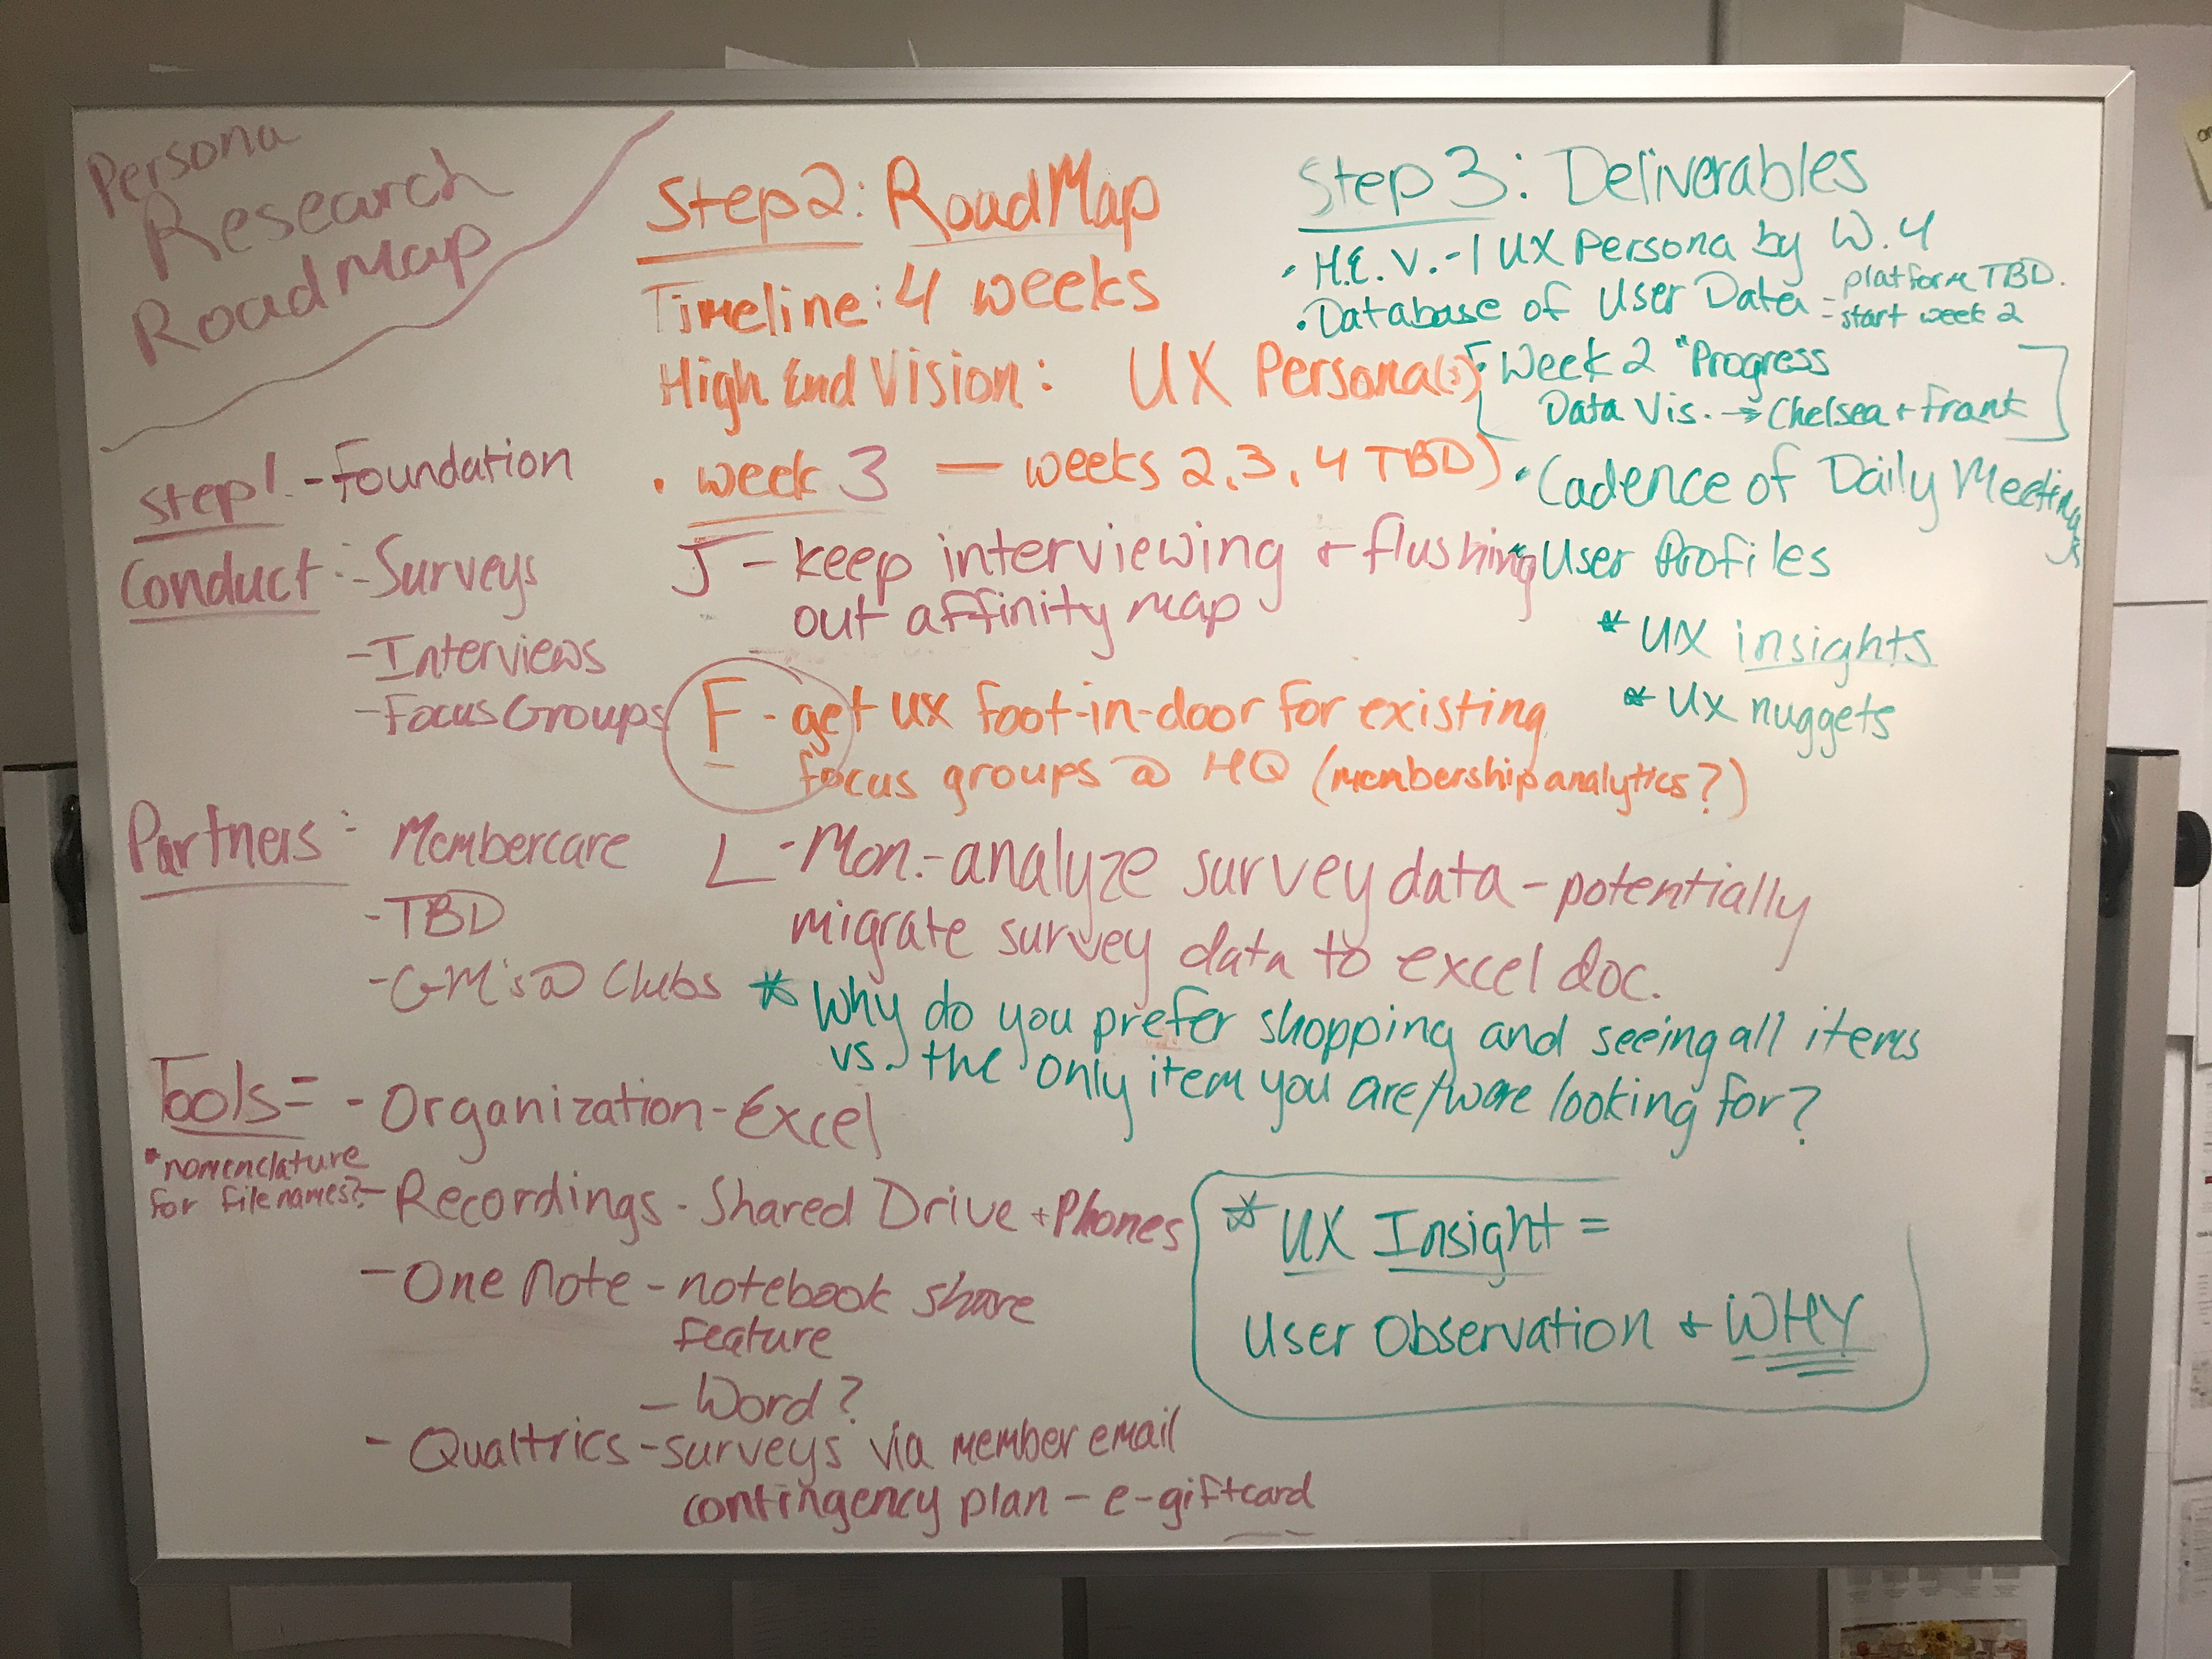 Persona
Research
RoadMap
Step 1. - Foundation
Conduct: - Surveys
- Interviews
- Focus Groups
Partners: Membercare
- TBD
- GM's @ Clubs
Tools = - Organization - Excel
*nomenclature
for filenames?
- Recordings - Shared Drive + Phones
- One Note - notebook share
feature
- Word?
- Qualtrics - surveys via member email
contingency plan - e-giftcard
Step 2: RoadMap
Timeline: 4 weeks
High End Vision: UX Persona(s)
• week 3 — weeks 2, 3, 4 TBD)
J - keep interviewing + flushing
out affinity map
F - get UX foot-in-door for existing
focus groups @ HQ (membership analytics?)
L - Mon. - analyze survey data - potentially
migrate survey data to excel doc.
* Why do you prefer shopping and seeing all items
vs. the only item you are/were looking for?
Step 3: Deliverables
• H.E.V. - 1 UX Persona by W. 4
• Database of User Data - platform TBD.
- start week 2
Week 2 "Progress
Data Vis. → Chelsea + Frank
• Cadence of Daily Meetings
* User Profiles
* UX insights
* UX nuggets
* UX Insight =
User Observation + WHY